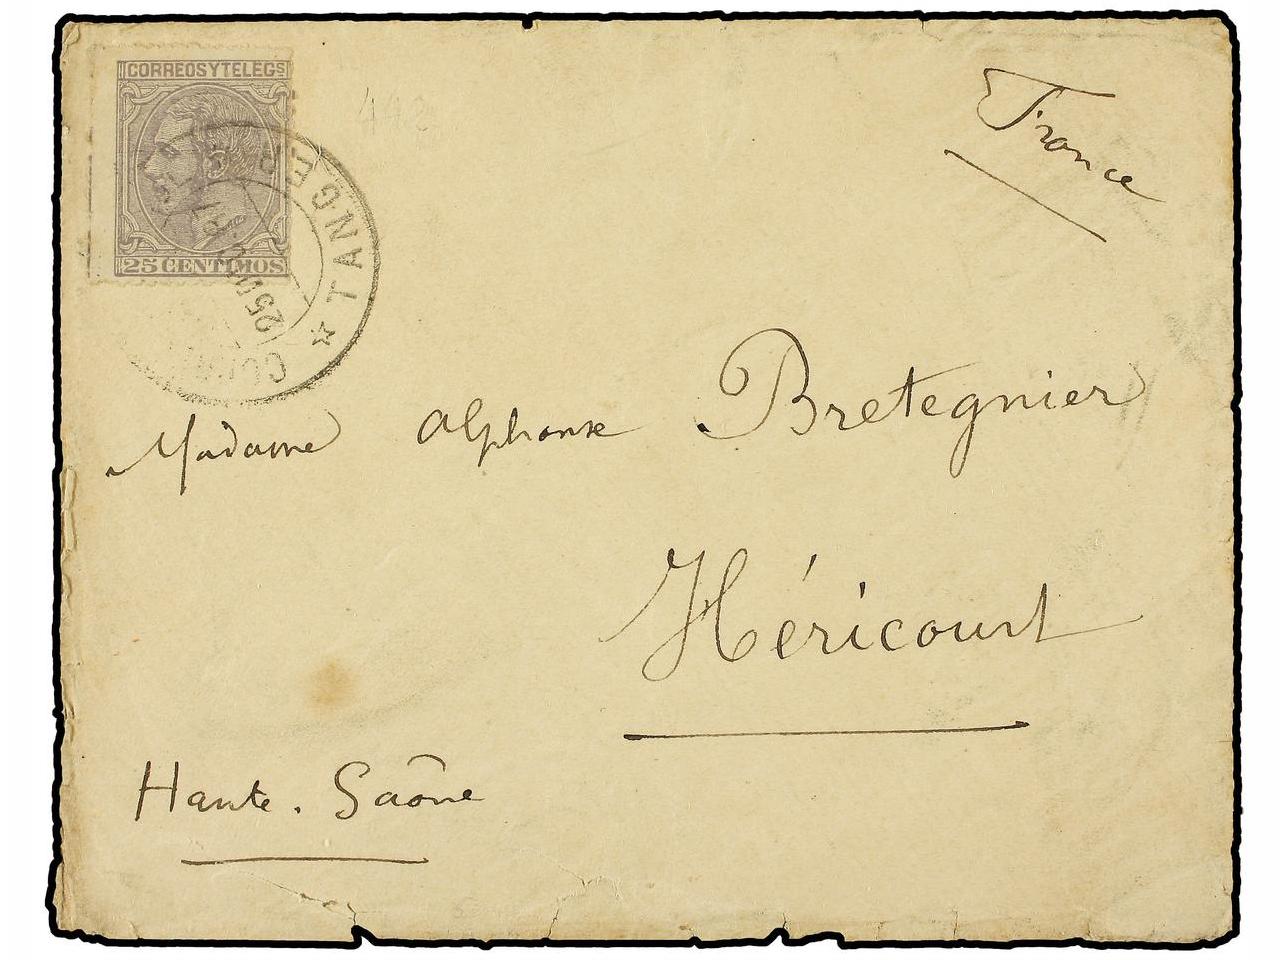 CORREOS Y TELEGS
25 CENTIMOS
TANGER
25
France
Madame Alphonse Bretegnier
Héricourt
Haute. Saône